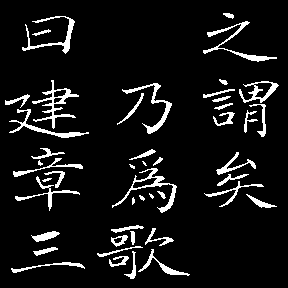 之謂矣
乃為歌
曰建章三